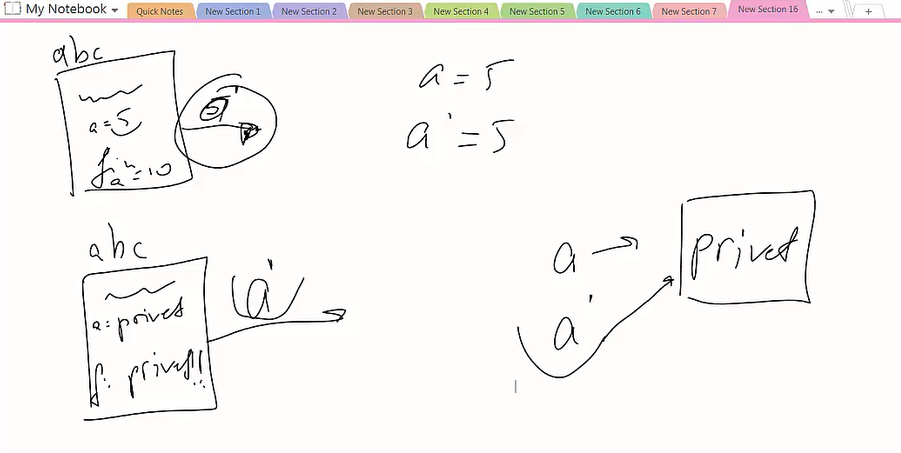 My Notebook
Quick Notes
New Section 1
New Section 2
New Section 3
New Section 4
New Section 5
New Section 6
New Section 7
New Section 16
...
abc
a = 5
a' = 10
a = 5
a' = 5
abc
a = privet
f: privet!!
a'
a →
privet
a'